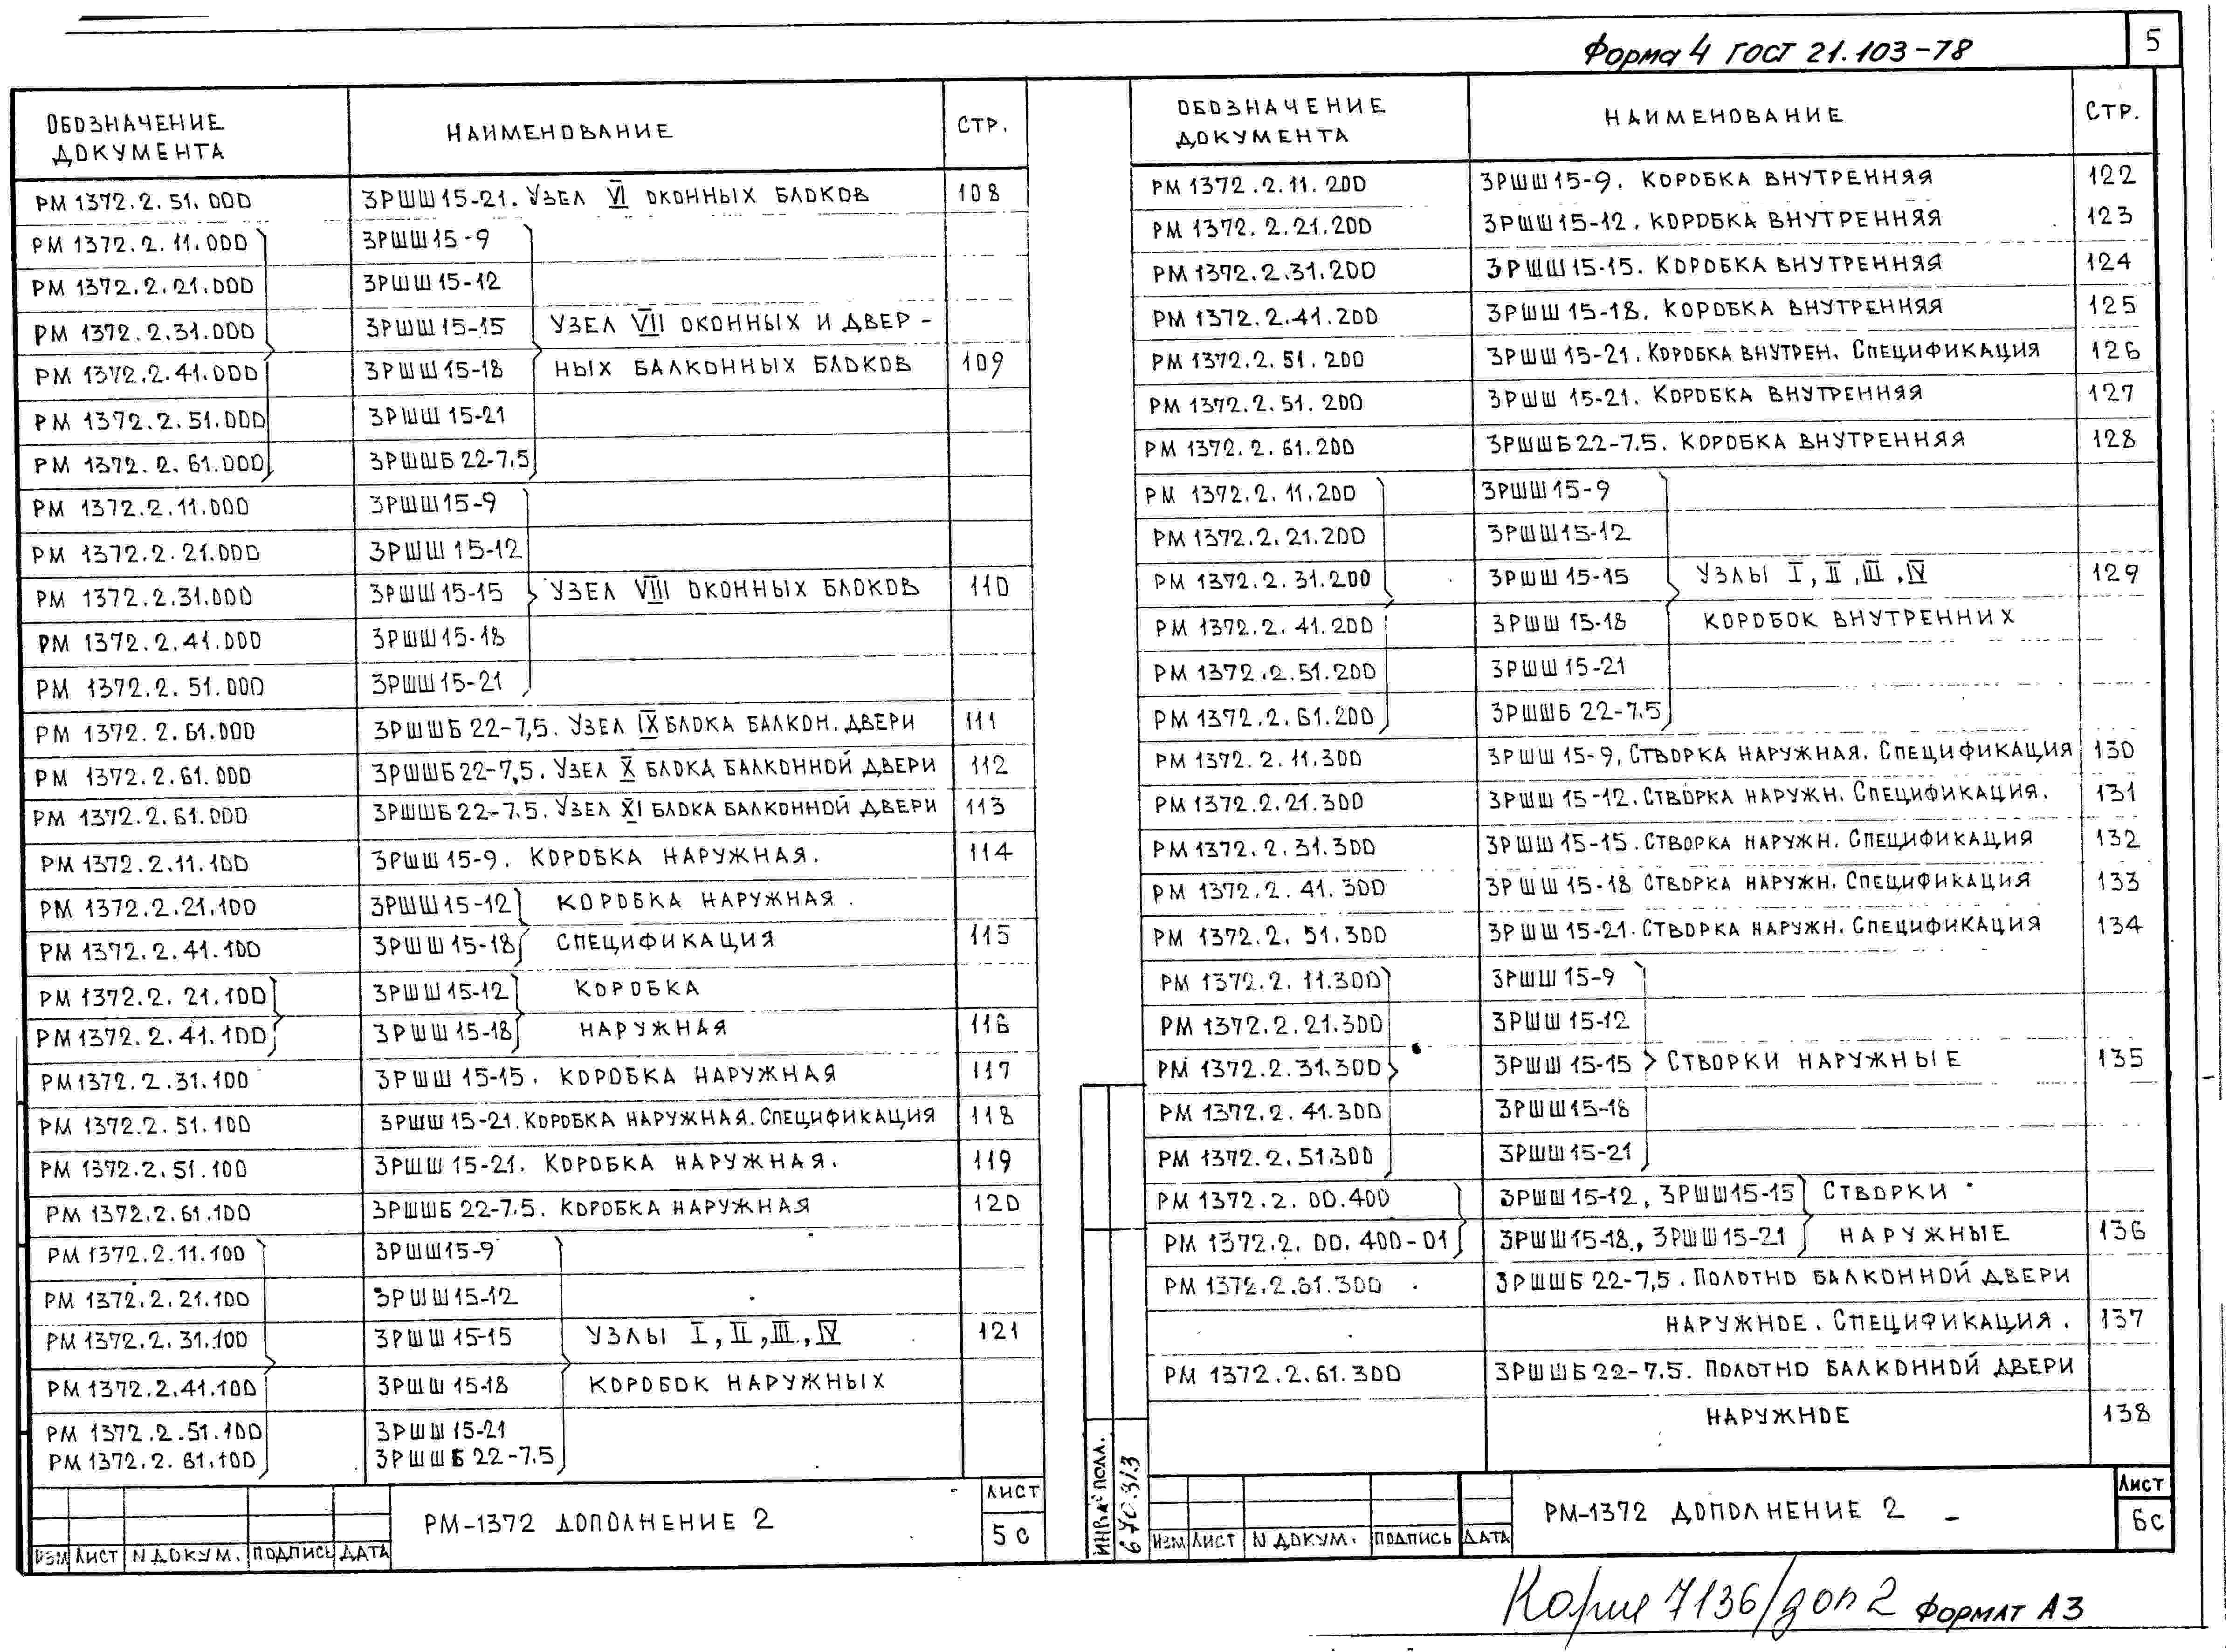 Форма 4 ГОСТ 21.103-78
5
ОБОЗНАЧЕНИЕ ДОКУМЕНТА НАИМЕНОВАНИЕ СТР.
РМ 1372.2.51.000 3РШШ 15-21. УЗЕЛ VI ОКОННЫХ БЛОКОВ 108
РМ 1372.2.11.000 3РШШ 15-9
РМ 1372.2.21.000 3РШШ 15-12
РМ 1372.2.31.000 3РШШ 15-15 УЗЕЛ VII ОКОННЫХ И ДВЕР-
РМ 1372.2.41.000 3РШШ 15-18 НЫХ БАЛКОННЫХ БЛОКОВ 109
РМ 1372.2.51.000 3РШШ 15-21
РМ 1372.2.61.000 3РШШБ 22-7.5
РМ 1372.2.11.000 3РШШ 15-9
РМ 1372.2.21.000 3РШШ 15-12
РМ 1372.2.31.000 3РШШ 15-15 УЗЕЛ VIII ОКОННЫХ БЛОКОВ 110
РМ 1372.2.41.000 3РШШ 15-18
РМ 1372.2.51.000 3РШШ 15-21
РМ 1372.2.61.000 3РШШБ 22-7,5. УЗЕЛ IX БЛОКА БАЛКОН. ДВЕРИ 111
РМ 1372.2.61.000 3РШШБ 22-7,5. УЗЕЛ X БЛОКА БАЛКОННОЙ ДВЕРИ 112
РМ 1372.2.61.000 3РШШБ 22-7.5. УЗЕЛ XI БЛОКА БАЛКОННОЙ ДВЕРИ 113
РМ 1372.2.11.100 3РШШ 15-9. КОРОБКА НАРУЖНАЯ. 114
РМ 1372.2.21.100 3РШШ 15-12 КОРОБКА НАРУЖНАЯ.
РМ 1372.2.41.100 3РШШ 15-18 СПЕЦИФИКАЦИЯ 115
РМ 1372.2.21.100 3РШШ 15-12 КОРОБКА
РМ 1372.2.41.100 3РШШ 15-18 НАРУЖНАЯ 116
РМ 1372.2.31.100 3РШШ 15-15. КОРОБКА НАРУЖНАЯ 117
РМ 1372.2.51.100 3РШШ 15-21. КОРОБКА НАРУЖНАЯ. СПЕЦИФИКАЦИЯ 118
РМ 1372.2.51.100 3РШШ 15-21. КОРОБКА НАРУЖНАЯ. 119
РМ 1372.2.61.100 3РШШБ 22-7.5. КОРОБКА НАРУЖНАЯ 120
РМ 1372.2.11.100 3РШШ 15-9
РМ 1372.2.21.100 3РШШ 15-12
РМ 1372.2.31.100 3РШШ 15-15 УЗЛЫ I, II, III, IV 121
РМ 1372.2.41.100 3РШШ 15-18 КОРОБОК НАРУЖНЫХ
РМ 1372.2.51.100 3РШШ 15-21
РМ 1372.2.61.100 3РШШБ 22-7.5
ИЗМ ЛИСТ N ДОКУМ. ПОДПИСЬ ДАТА
РМ-1372 ДОПОЛНЕНИЕ 2
ЛИСТ
5 с
ОБОЗНАЧЕНИЕ ДОКУМЕНТА НАИМЕНОВАНИЕ СТР.
РМ 1372.2.11.200 3РШШ 15-9. КОРОБКА ВНУТРЕННЯЯ 122
РМ 1372.2.21.200 3РШШ 15-12. КОРОБКА ВНУТРЕННЯЯ 123
РМ 1372.2.31.200 3РШШ 15-15. КОРОБКА ВНУТРЕННЯЯ 124
РМ 1372.2.41.200 3РШШ 15-18. КОРОБКА ВНУТРЕННЯЯ 125
РМ 1372.2.51.200 3РШШ 15-21. КОРОБКА ВНУТРЕН. СПЕЦИФИКАЦИЯ 126
РМ 1372.2.51.200 3РШШ 15-21. КОРОБКА ВНУТРЕННЯЯ 127
РМ 1372.2.61.200 3РШШБ 22-7.5. КОРОБКА ВНУТРЕННЯЯ 128
РМ 1372.2.11.200 3РШШ 15-9
РМ 1372.2.21.200 3РШШ 15-12
РМ 1372.2.31.200 3РШШ 15-15 УЗЛЫ I, II, III, IV 129
РМ 1372.2.41.200 3РШШ 15-18 КОРОБОК ВНУТРЕННИХ
РМ 1372.2.51.200 3РШШ 15-21
РМ 1372.2.61.200 3РШШБ 22-7.5
РМ 1372.2.11.300 3РШШ 15-9. СТВОРКА НАРУЖНАЯ. СПЕЦИФИКАЦИЯ 130
РМ 1372.2.21.300 3РШШ 15-12. СТВОРКА НАРУЖН. СПЕЦИФИКАЦИЯ. 131
РМ 1372.2.31.300 3РШШ 15-15. СТВОРКА НАРУЖН. СПЕЦИФИКАЦИЯ 132
РМ 1372.2.41.300 3РШШ 15-18 СТВОРКА НАРУЖН. СПЕЦИФИКАЦИЯ 133
РМ 1372.2.51.300 3РШШ 15-21. СТВОРКА НАРУЖН. СПЕЦИФИКАЦИЯ 134
РМ 1372.2.11.300 3РШШ 15-9
РМ 1372.2.21.300 3РШШ 15-12
РМ 1372.2.31.300 3РШШ 15-15 СТВОРКИ НАРУЖНЫЕ 135
РМ 1372.2.41.300 3РШШ 15-18
РМ 1372.2.51.300 3РШШ 15-21
РМ 1372.2.00.400 3РШШ 15-12, 3РШШ 15-15 СТВОРКИ
РМ 1372.2.00.400-01 3РШШ 15-18, 3РШШ 15-21 НАРУЖНЫЕ 136
РМ 1372.2.61.300 3РШШБ 22-7,5. ПОЛОТНО БАЛКОННОЙ ДВЕРИ
НАРУЖНОЕ. СПЕЦИФИКАЦИЯ. 137
РМ 1372.2.61.300 3РШШБ 22-7.5. ПОЛОТНО БАЛКОННОЙ ДВЕРИ
НАРУЖНОЕ 138
ИЗМ ЛИСТ N ДОКУМ. ПОДПИСЬ ДАТА
РМ-1372 ДОПОЛНЕНИЕ 2
ЛИСТ
6с
7136/доп 2 ФОРМАТ А3